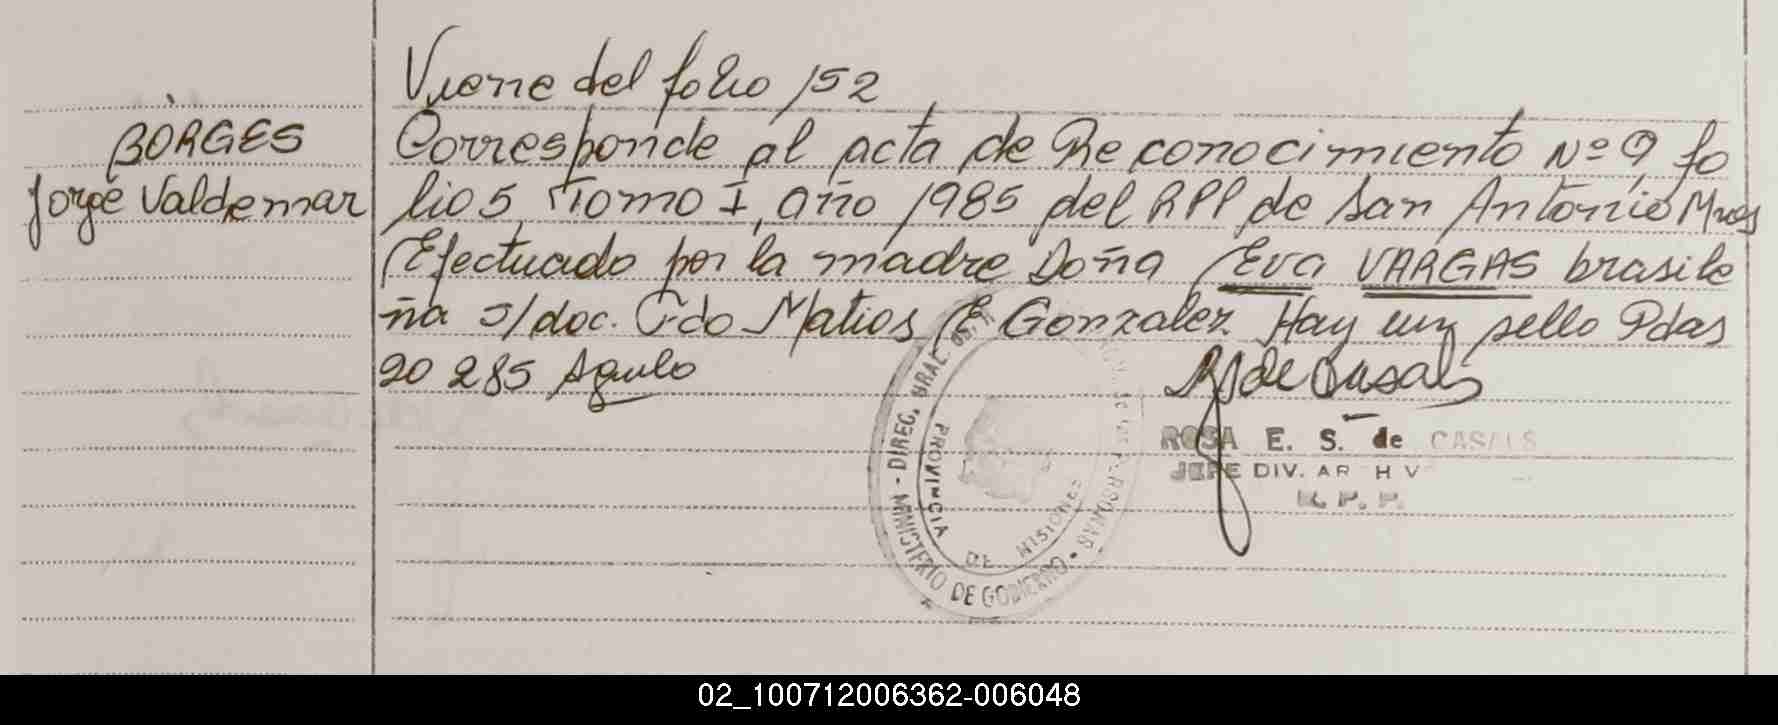 Viene del folio 152
BORGES
Jorge Valdemar
Corresponde al acta de Reconocimiento Nº 9, fo
lio 5, Tomo I, año 1985 del RPP de San Antonio Mnes
Efectuado por la madre Doña Eva VARGAS brasile
ña s/doc. Fdo Matios E Gonzalez Hay un sello Pdas
20 2 85 Agulo
ROSA E. S. de CASALS
JEFE DIV. AR H V
R. P. P.
MINISTERIO DE GOBIERNO - DIREC. GRAL. PERSONAS
PROVINCIA DE MISIONES
02_100712006362-006048